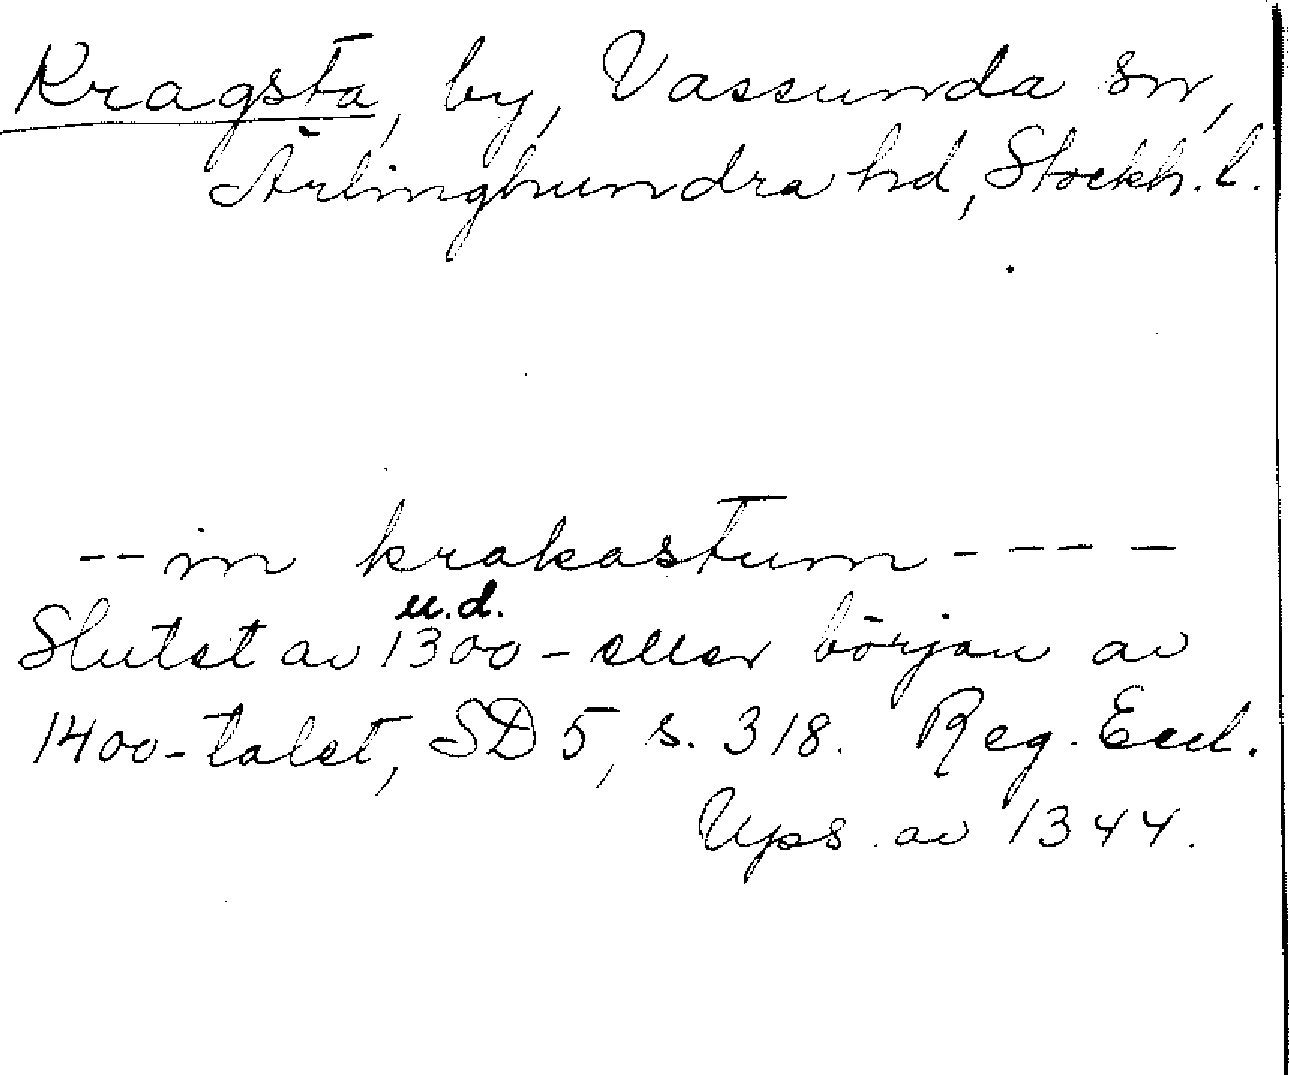 Kragsta, by, Vassunda sn,
Ärlinghundra hd, Stockh. l.
-- in krakastum ----
u.d.
Slutet av 1300- eller början av
1400-talet, SD 5, s. 318. Reg. Eccl.
Ups. av 1344.